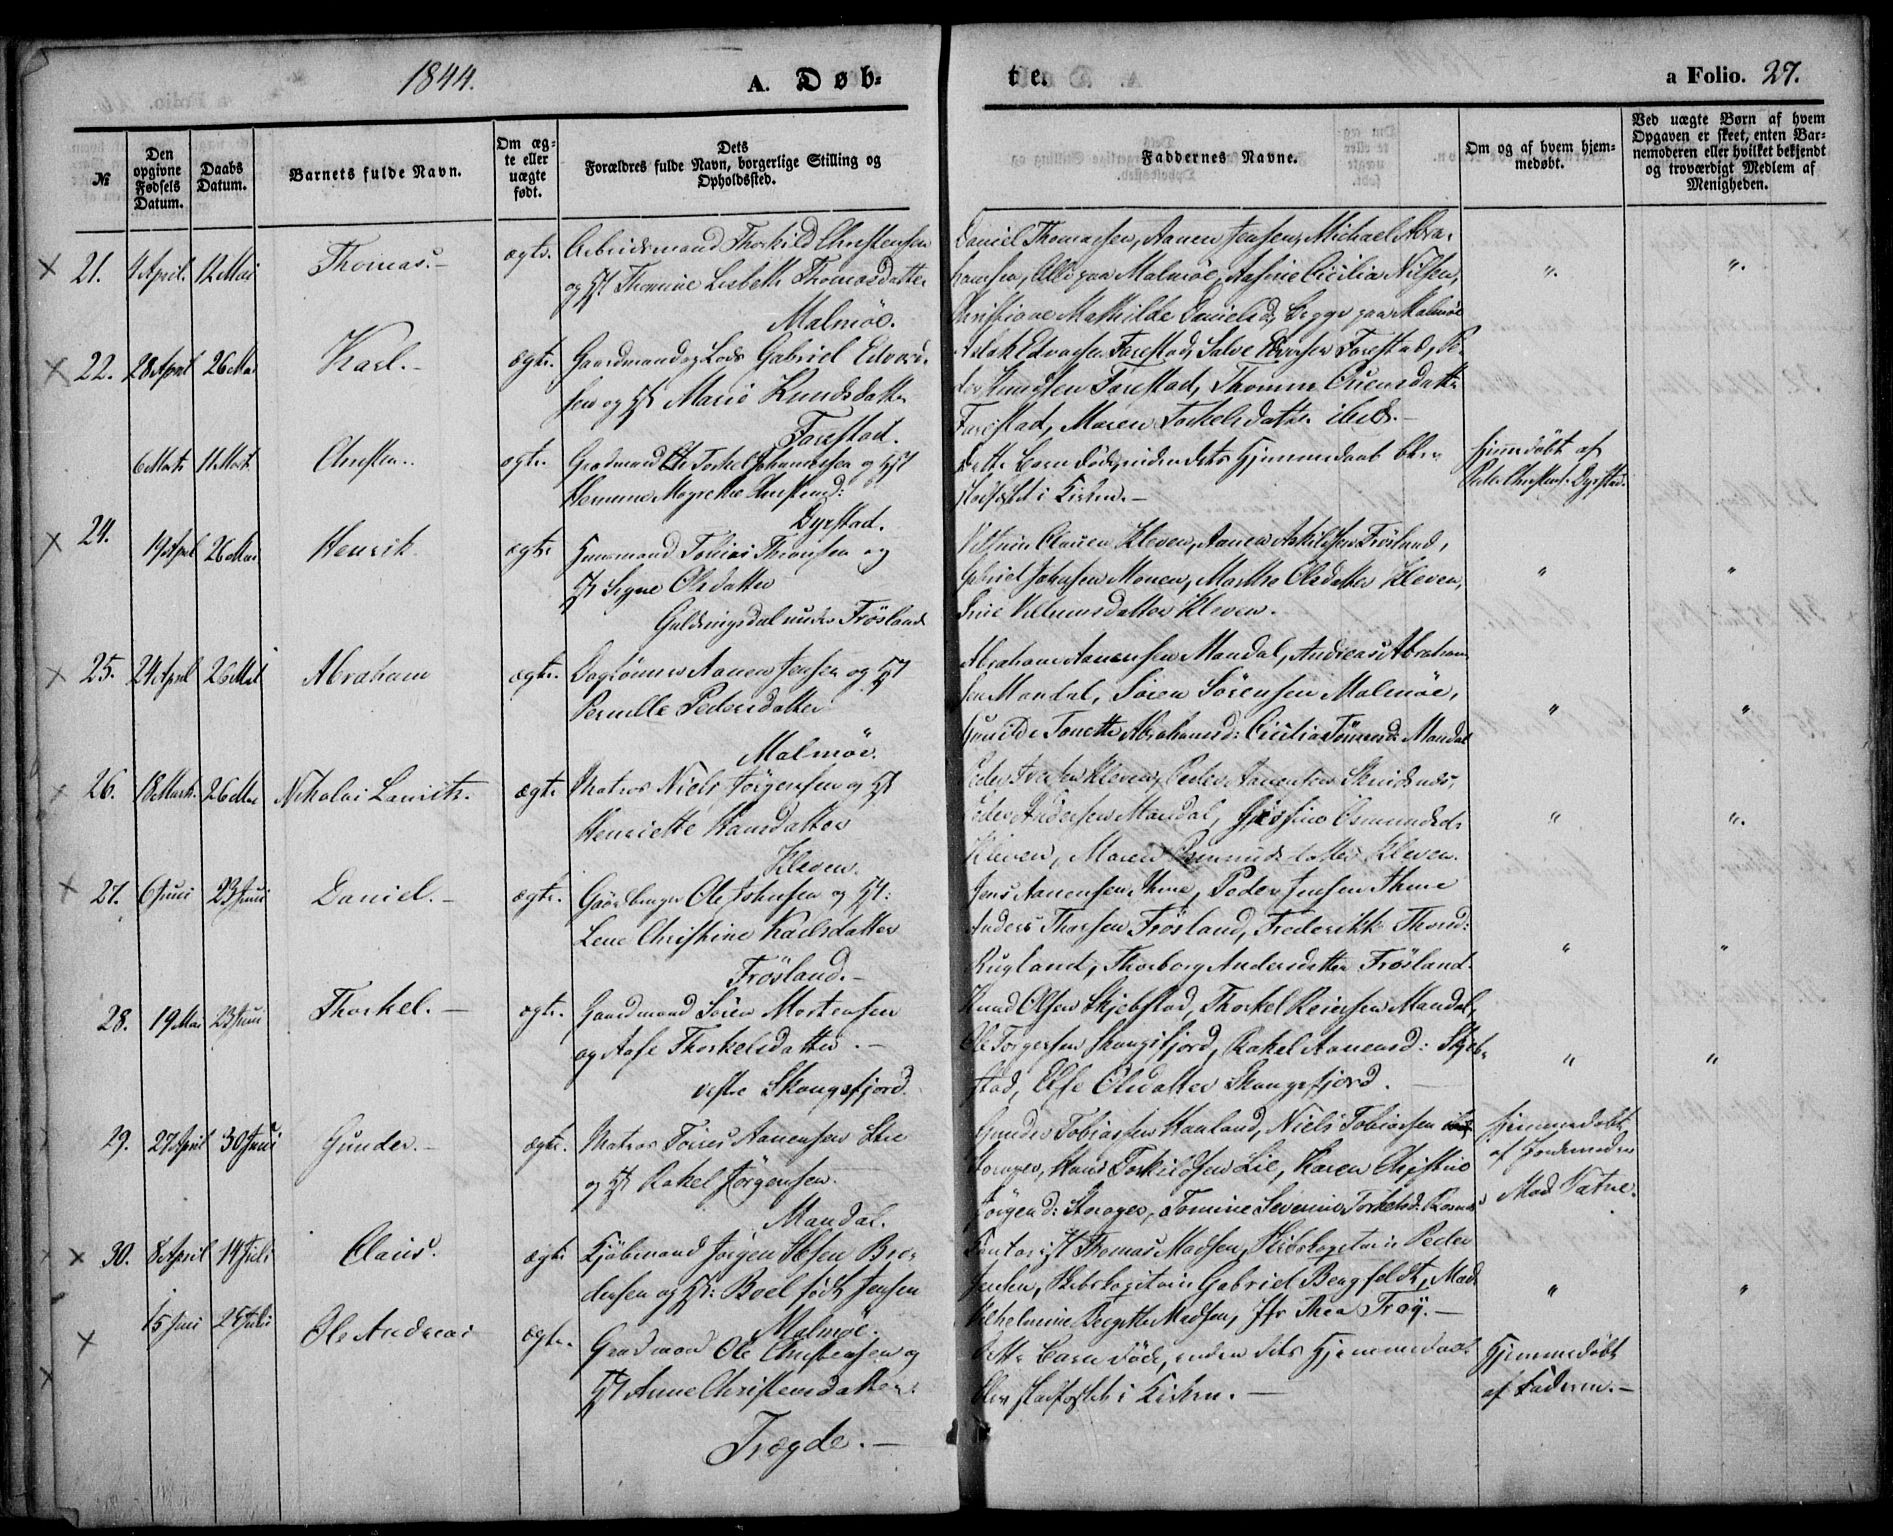 1844.
A. Døb-
te.
a Folio. 27.
№
Den opgivne Fødsels Datum.
Daabs Datum.
Barnets fulde Navn.
Om ægte eller uægte født.
Dets Forældres fulde Navn, borgerlige Stilling og Opholdssted.
Faddernes Navne.
Om og af hvem hjemmedøbt.
Ved uægte Børn af hvem Opgaven er skeet, enten Barnemoderen eller hvilket bekjendt og troværdigt Medlem af Menigheden.
21. 4 April. 12 Mai Thomas.- ægte. Arbeidsmand Thorkild Christensen
og H. Thomine Lisbeth Thomasdatter
Malmøe.
Daniel Thomassen, Aanen Jensen, Michael Abra-
hamsen, Alle paa Malmøe, Cicilia Nilsen,
Christiane Mathilde Danielsd. Begge paa Malmøe
" "
22. 28 April 26 Mai Karl.- ægte. Gaardmand og Lods Gabriel Edvard-
sen og H. Marie Knudsdatter
Farestad.
Aslak Edvardsen Farestad, Salve Farestad, Pe-
der Knudsen Farestad, Thomine datter
Farestad, Maren Torkelsdatter ibid.-
6 Marts 11 Marts Christen.. ægte. Gaardmand Torkel Johannessen og H.
Dyrstad.
Dette Barn døde, inden dets Hjemmedaab blev
stadfæstet i Kirken.-
hjemmedøbt af
Peder Christens. Dyrstad.
24. 19 April 26 Mai Henrik ægte. Huusmand Tobias Thorsen og
H. Signe Olsdatter
under Frøsland
Clausen Kleven, Aanen Askildsen Frøsland,
Gabriel Johnsen Monen, Martha Olsdatter Kleven,
Kleven.
" "
25. 24 April 26 Mai Abraham ægte. Daglønner Aanen Jensen og H.
Pernille Pedersdatter
Malmøe.
Abraham Aanensen Mandal, Andreas Abraham-
sen Mandal, Søren Sørensen Malmøe,
Gunilde Tonette Abrahamsd: Cicilia Mandal
" "
26. 18 Marts. 26 Mai Nikolai Lauritz. ægte Matros Niels Jørgensen og H.
Henriette Hansdatter
Kleven.
Peder Kleven, Peder Aanensen
Peder Andersen Mandal, Osmundsd:
Kleven, Maren datter Kleven.
" "
27. 6 Juni 23 Juni Daniel.- ægte. Gaardbruger Ole Johnsen og H:
Lene Christine Karlsdatter
Frøsland.-
Jens Aanensen Ihme, Peder Jensen Ihme
Anders Thorsen Frøsland, Frederikke Thorsd:
Rugland, Thorborg Andersdatter Frøsland.
" "
28. 19 Mai 23 Juni Thorkel.- ægte. Gaardmand Søren Mortensen
og Aase Thorkelsdatter.-
vestre Skougsfjord.
Knud Olsen Skjebstad, Thorkel Reiersen Mandal,
Ole Torgersen Skougsfjord, Rakel Aanensd: Skjeb-
stad, Else Olsdatter Skougsfjord.
" "
29. 27 April 30 Juni Gunder.- ægte. Matros Torres Aanensen Lie
og H. Rakel Jørgensen.
Mandal.
Gunder Tobiassen Hauland, Niels Tobiassen
Storager, Hans Torkildsen Lie, Karen Christine
Jørgend: Storager, Tomine Severine Torkelsd:
hjemmedøbt
af Jordemoder
Mad. Tatne.
30. 8 April 14 Juli Claus. ægte Kjøbmand Jørgen Ibsen Bro-
dersen og H: Boel født Jensen
Malmøe.
Kontorist Thomas Madsen, Skibskapitain Peder
Jensen, Skibskapitain Gabriel Bergfeldt, Mad.
Vilhelmine Birgitte Madsen, Jfr Thea Trøy.-
" "
15 Juni 28 Juli Ole Andreas ægte. Gaardmand Ole Christensen og
H. Anne Christensdatter.
Trægde.-
Dette Barn døde, inden dets Hjemmedaab
blev stadfæstet i Kirken.-
Hjemmedøbt
af Faderen.-